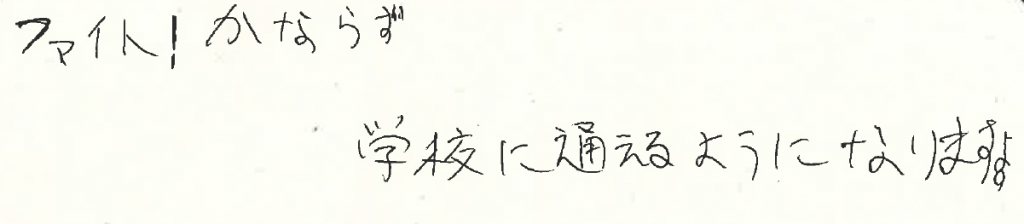 ファイト!かならず
学校に通えるようになりますよ。